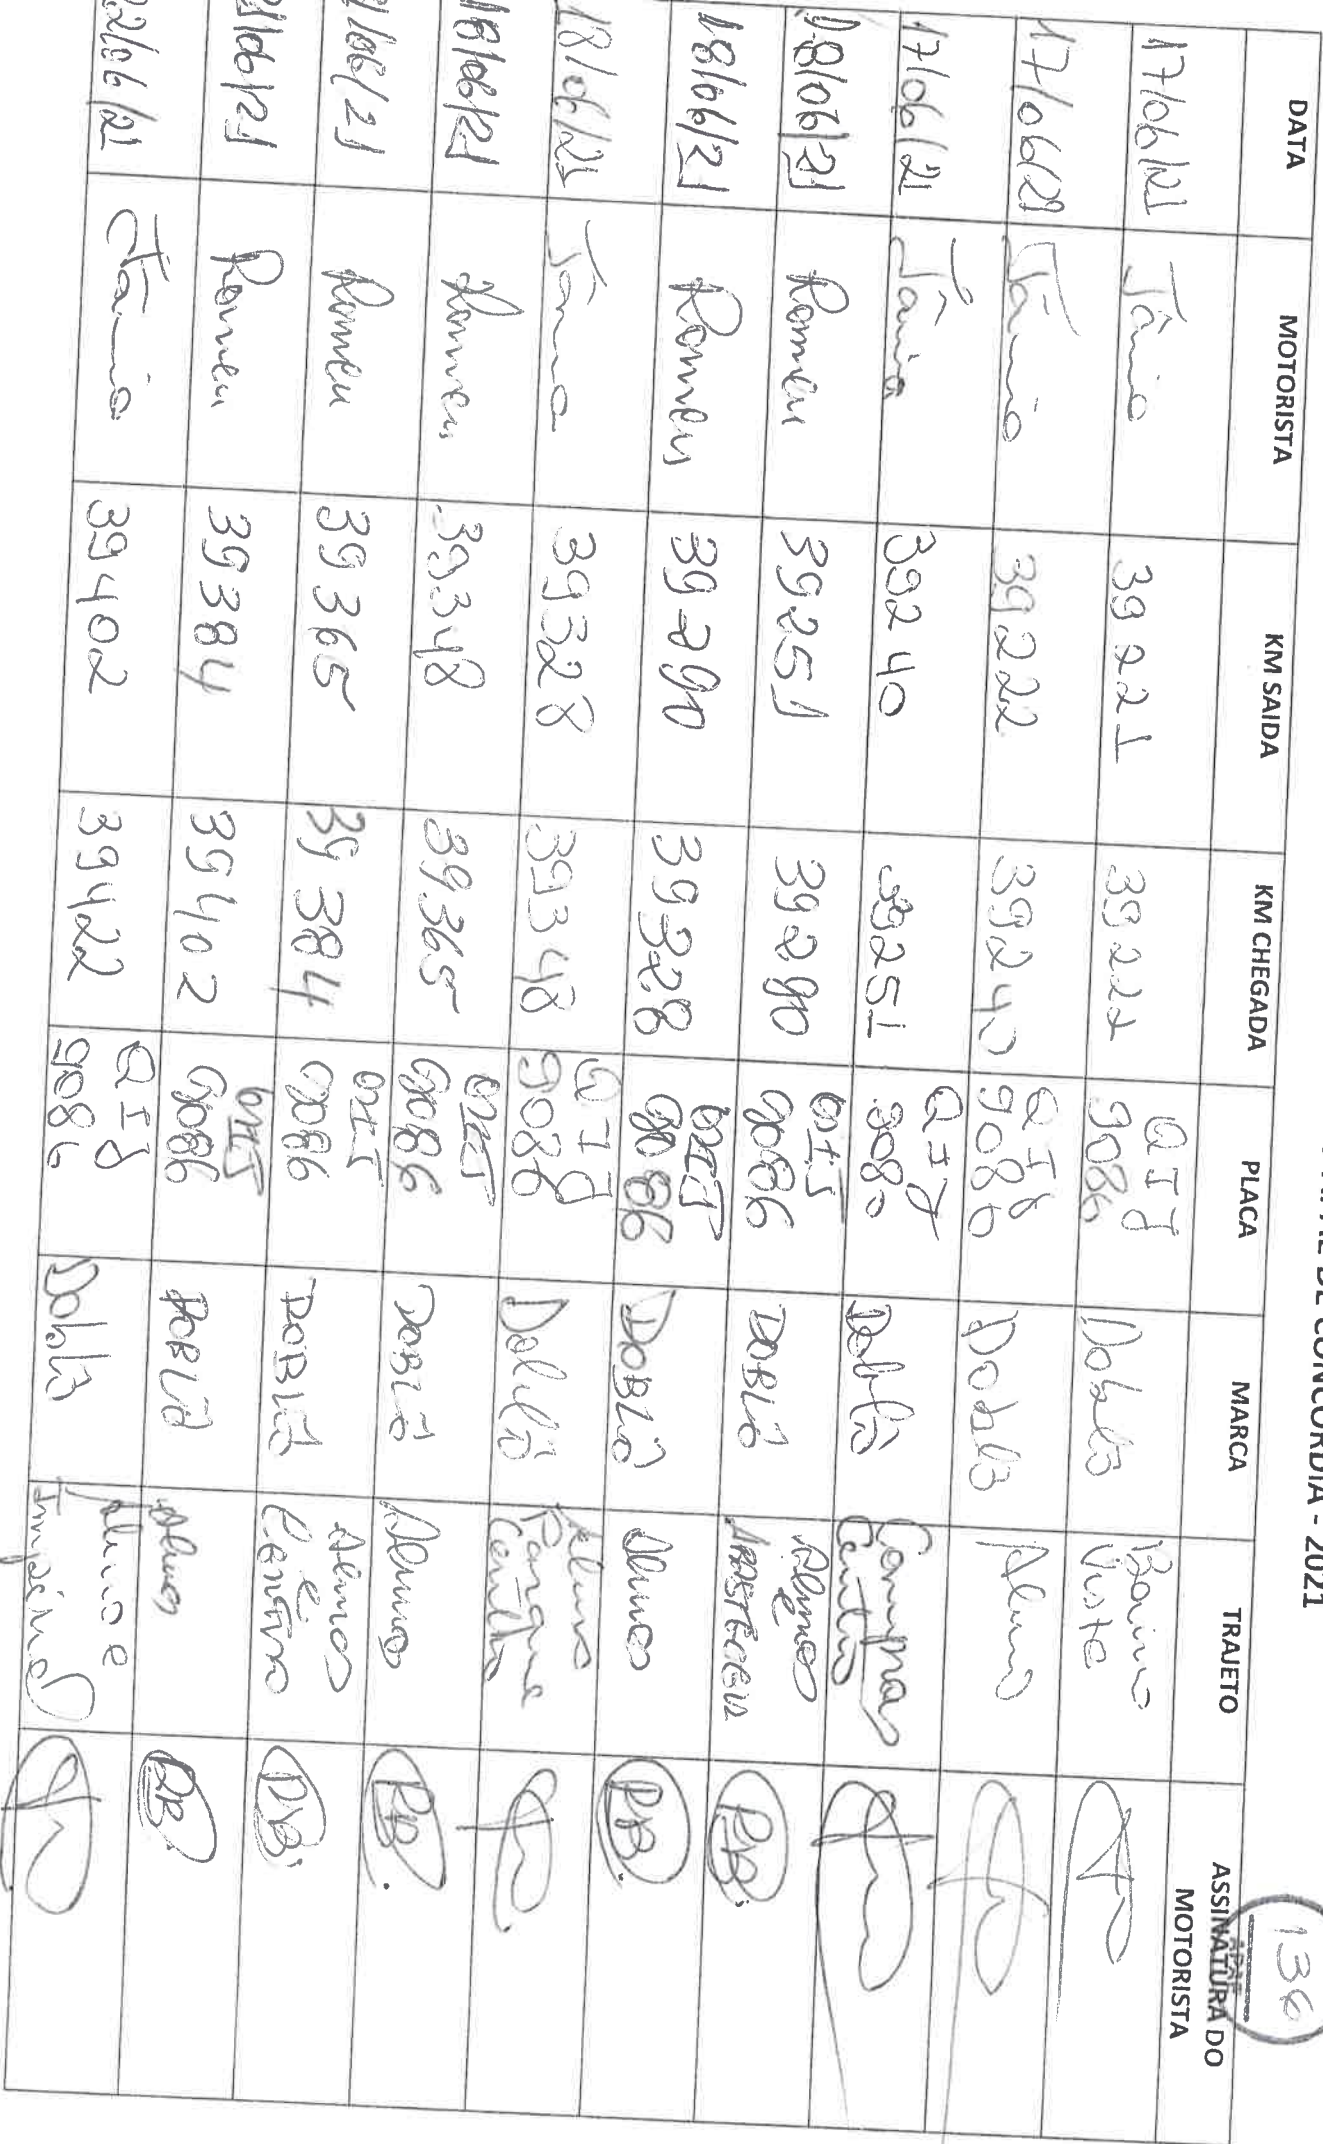 DE CONCÓRDIA - 2021
136
APAE
DATA MOTORISTA KM SAIDA KM CHEGADA PLACA MARCA TRAJETO ASSINATURA DO MOTORISTA
17/06/21 Tânia 39221 39222 QIJ 9086 Doblô Bairro Vista
17/06/21 Tânia 39222 39240 QIJ 9086 Doblô Aluno
17/06/21 Tânia 39240 39251 QIJ 9080 Doblô Compras Centro
18/06/21 Romeu 39251 39290 QIJ 9086 DOBLÔ Alunos e ABASTECER RB.
18/06/21 Romeu 39290 39328 QIJ 9086 DOBLÔ Alunos RB.
18/06/21 Tânia 39328 39348 QIJ 9086 Doblô Aluno Parque
18/06/21 Romeu 39348 39365 QIJ 9086 DOBLÔ Alunos RB.
/06/21 Romeu 39365 39384 QIJ 9086 DOBLÔ Alunos e RB.
21/06/21 Romeu 39384 39402 QIJ 9086 DOBLÔ Alunos RB.
22/06/21 Tânia 39402 39422 QIJ 9086 Doblô Aluno e Imperial